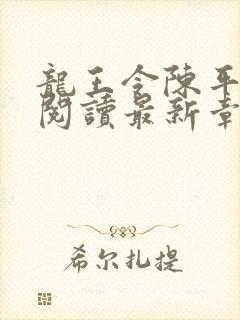 龍王令陳平
閱讀最新章
希尔扎提